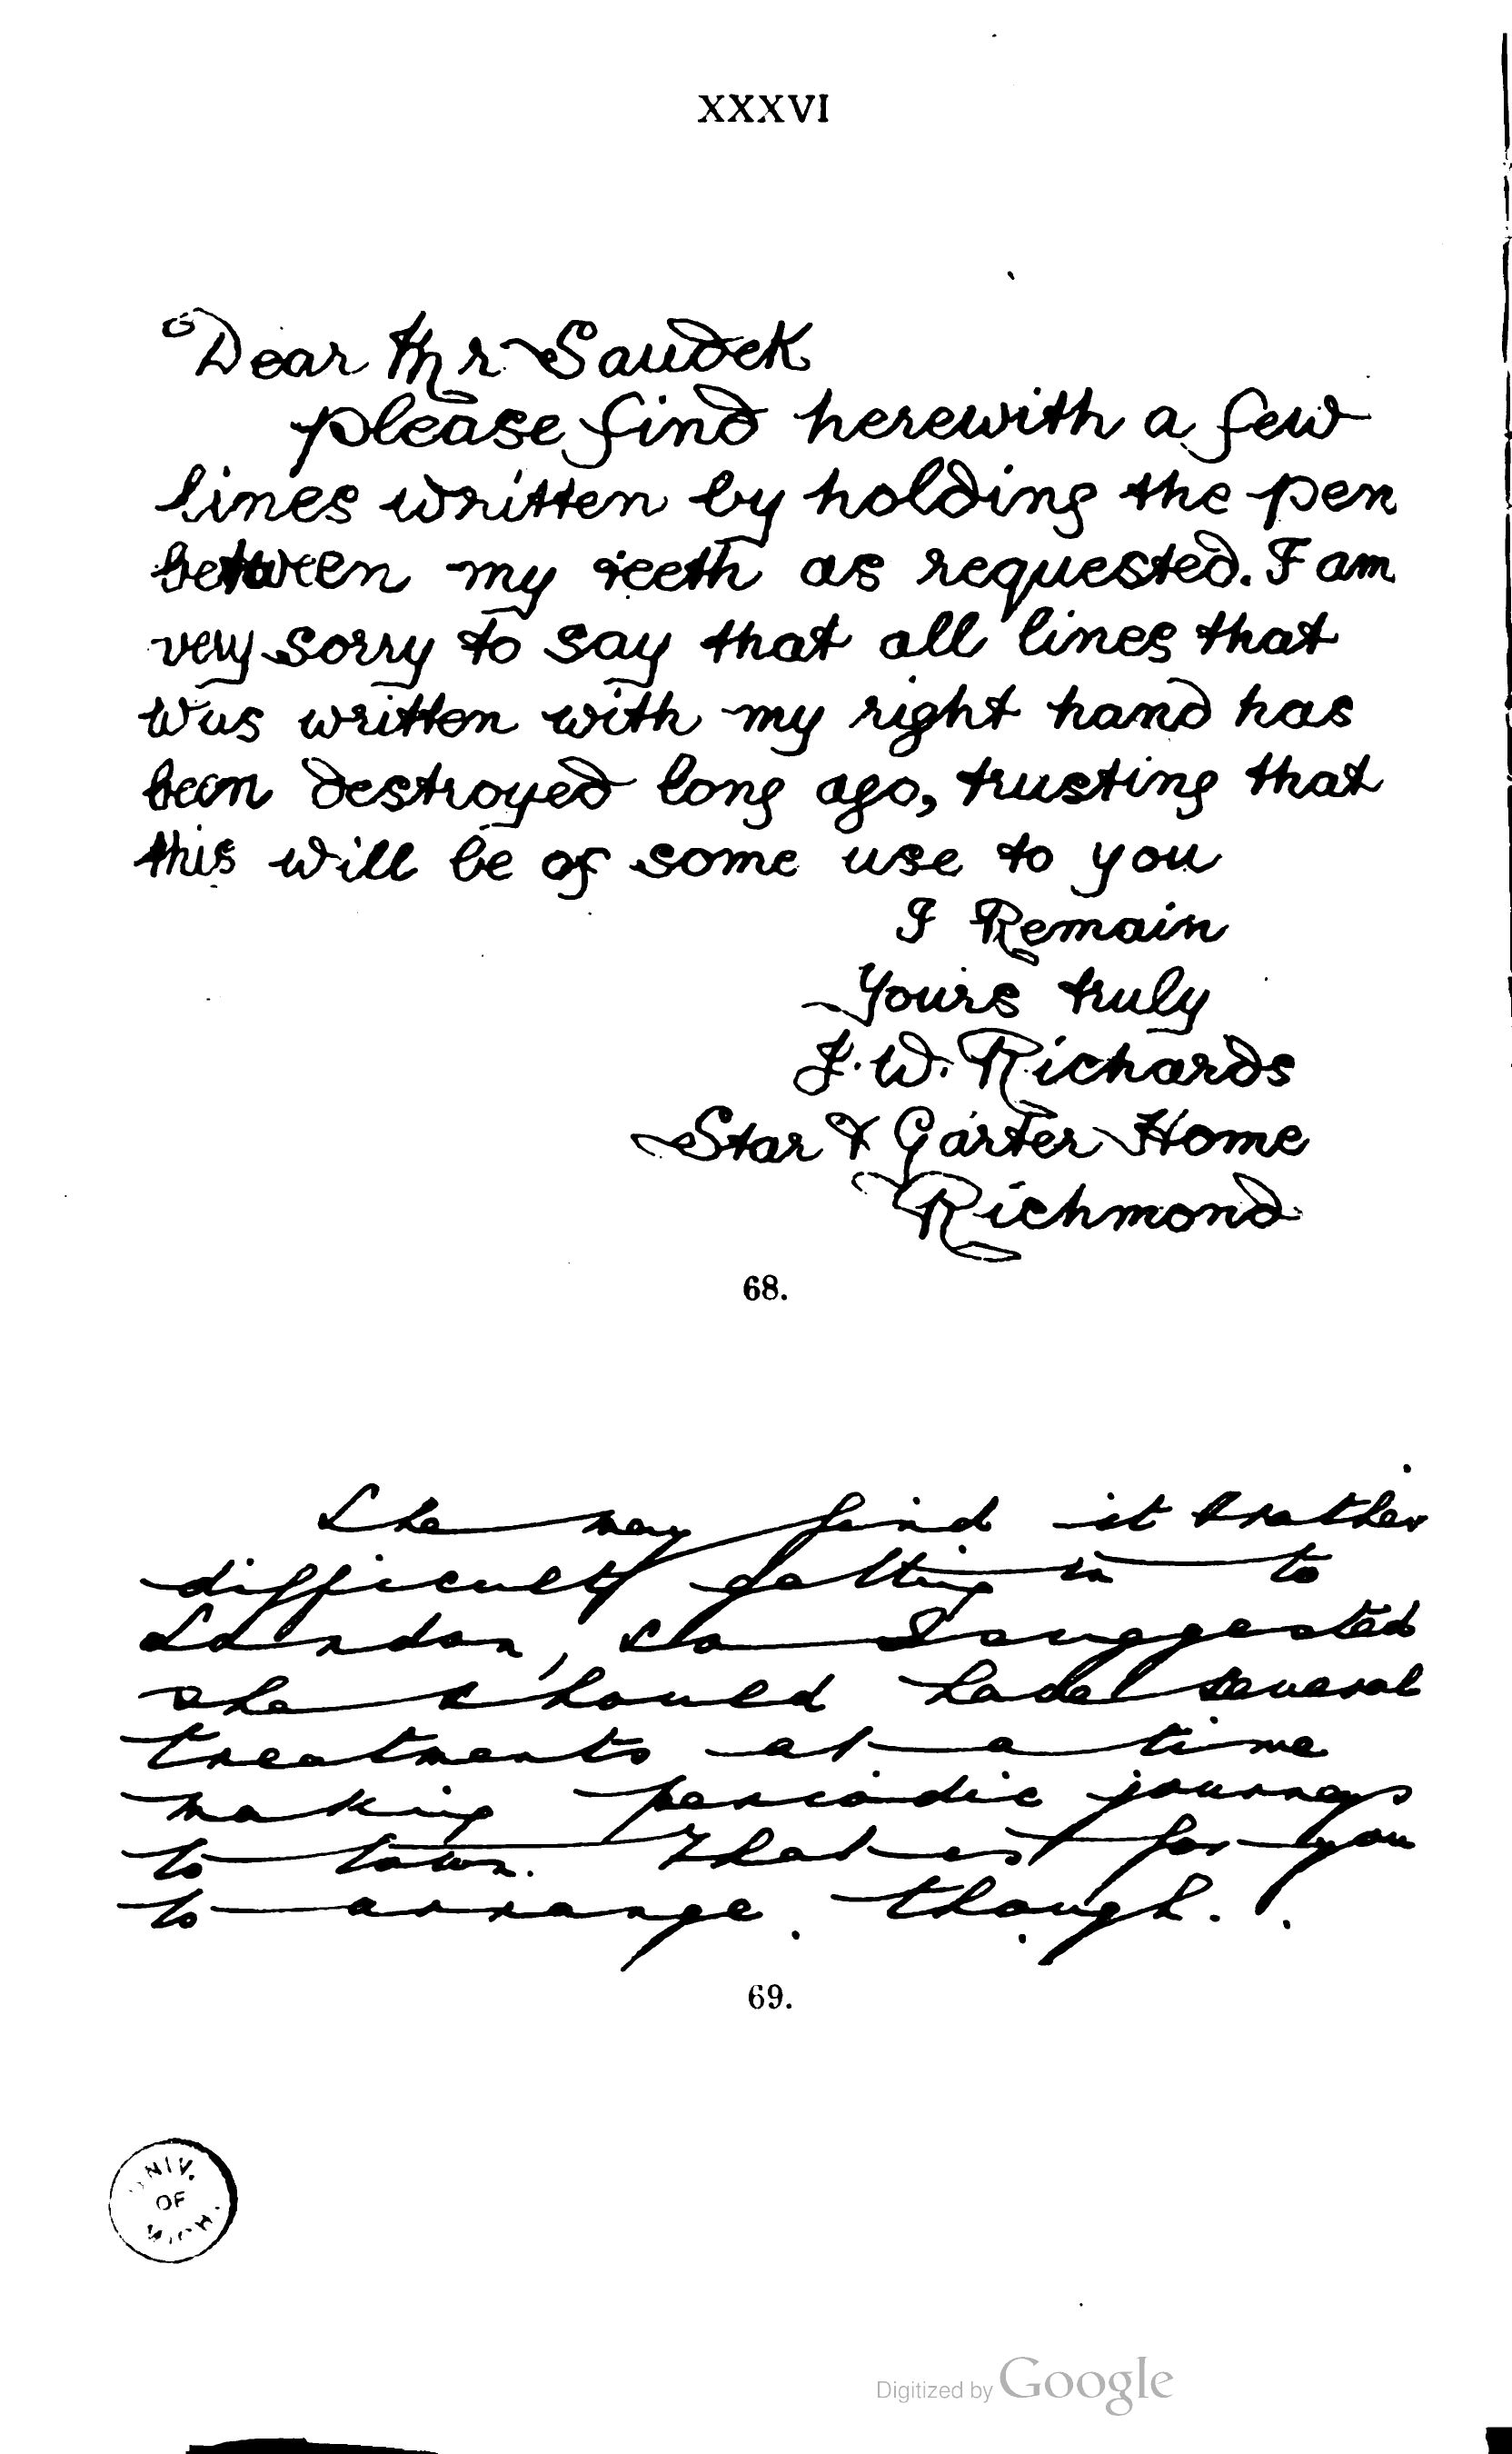 XXXVI
Dear Mr Saudek
please find herewith a few
lines written by holding the pen
between my teeth as requested. I am
very sorry to say that all lines that
was written with my right hand has
been destroyed long ago, trusting that
this will be of some use to you
I Remain
Yours truly
J. W. Richards
Star & Garter Home
Richmond
68.
She may find it rather
difficult getting in to
London, so I suggested
she should have several
treatments at a time
making periodic journeys
to town. That is for you
to arrange though.
69.
UNIV.
OF
MICH.
Digitized by Google